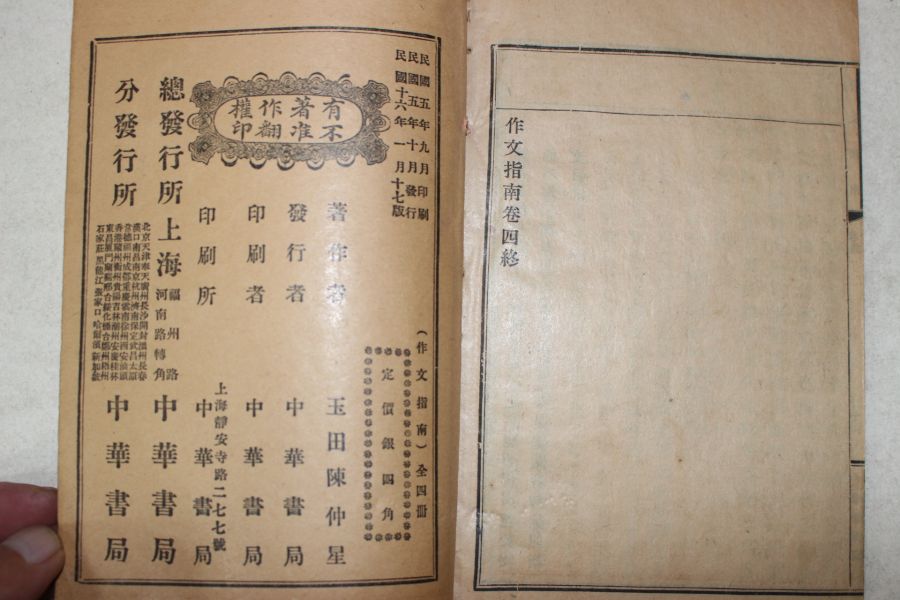 作文指南卷四終
民國五年九月印刷
民國五年十月發行
民國十六年一月十七版
有著作權
不准翻印
(作文指南)全四冊
定價銀四角
著作者 玉田陳仲星
發行者 中華書局
印刷者 中華書局
印刷所 上海靜安寺路二七七號 中華書局
總發行所 上海 福州路河南路轉角 中華書局
分發行所 中華書局